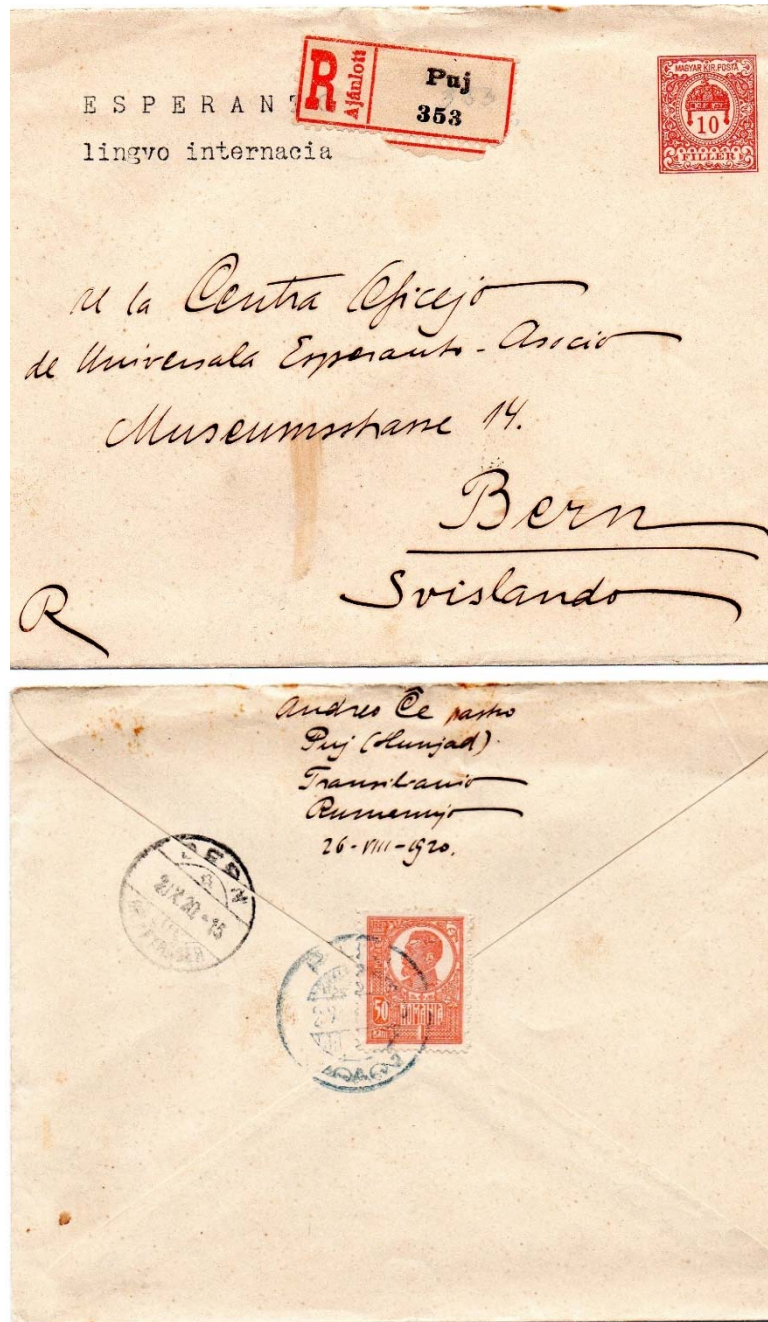 ESPERANT
lingvo internacia
R
Ajánlott
Puj
353
MAGYAR KIR. POSTA
10
FILLER
Al la Centra Oficejo
de Universala Esperanto-Asocio
Museumsstrasse 14.
Bern
Svislando
R
Andreo Ĉe
Puj (Hunjad).
Transilvanio
Rumenujo
26-VIII-1920.
BERN
50
ROMANIA